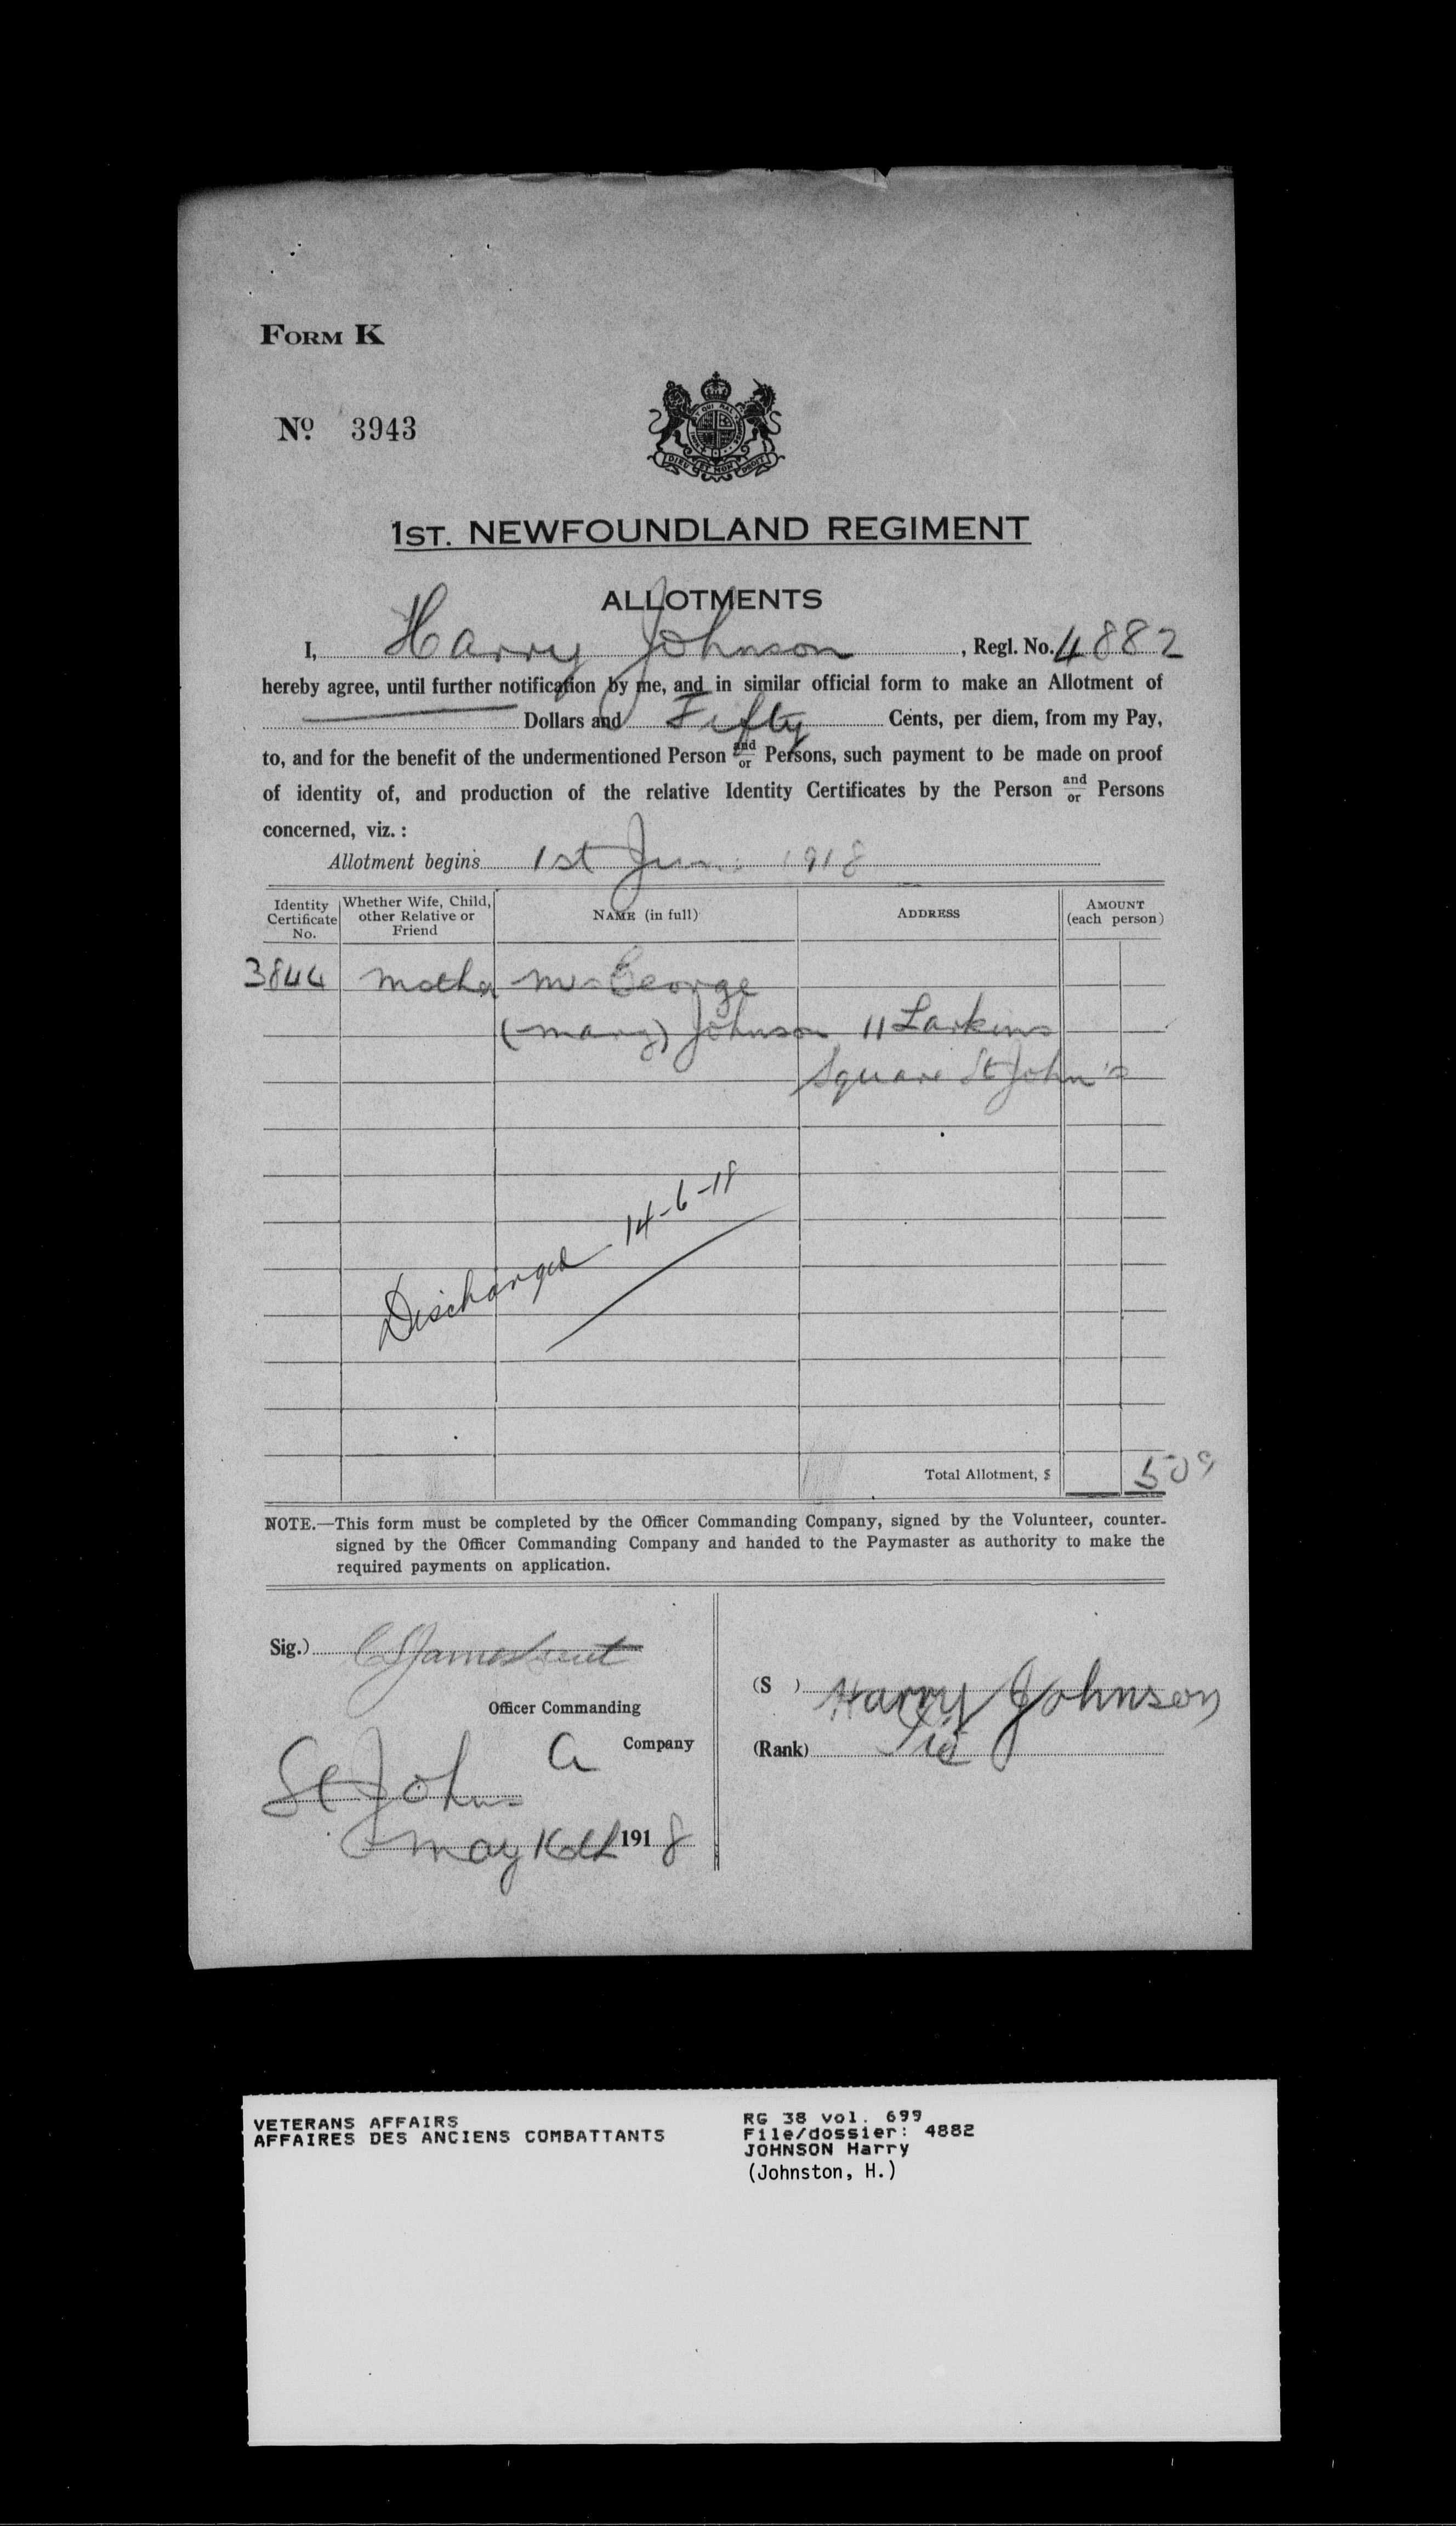 FORM K
No. 3943
DIEU ET MON DROIT
1ST. NEWFOUNDLAND REGIMENT
ALLOTMENTS
I, Harry Johnson, Regl. No. 4882
hereby agree, until further notification by me, and in similar official form to make an Allotment of
Dollars and Fifty Cents, per diem, from my Pay,
to, and for the benefit of the undermentioned Person and/or Persons, such payment to be made on proof
of identity of, and production of the relative Identity Certificates by the Person and/or Persons
concerned, viz. :
Allotment begins 1st June 1918
Identity Certificate No. Whether Wife, Child, other Relative or Friend NAME (in full) ADDRESS AMOUNT (each person)
3844 Mother Mrs George
(Mary) Johnson 11 Larkins
Square St John's
Discharged 14-6-18
Total Allotment, $ 50c
NOTE.—This form must be completed by the Officer Commanding Company, signed by the Volunteer, counter-
signed by the Officer Commanding Company and handed to the Paymaster as authority to make the
required payments on application.
Sig.)
(S ) Harry Johnson
Officer Commanding
a Company
(Rank) Pte
St Johns
May 16th 1918
VETERANS AFFAIRS
AFFAIRES DES ANCIENS COMBATTANTS
RG 38 vol. 699
File/dossier: 4882
JOHNSON Harry
(Johnston, H.)